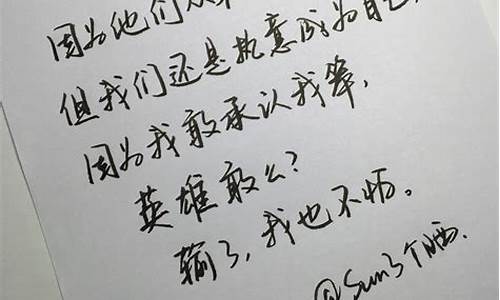 因为他们从
但我们还是执意成为自己,
因为我敢承认我笨,
英雄敢么?
输了,我也不怕。
@Sun3个